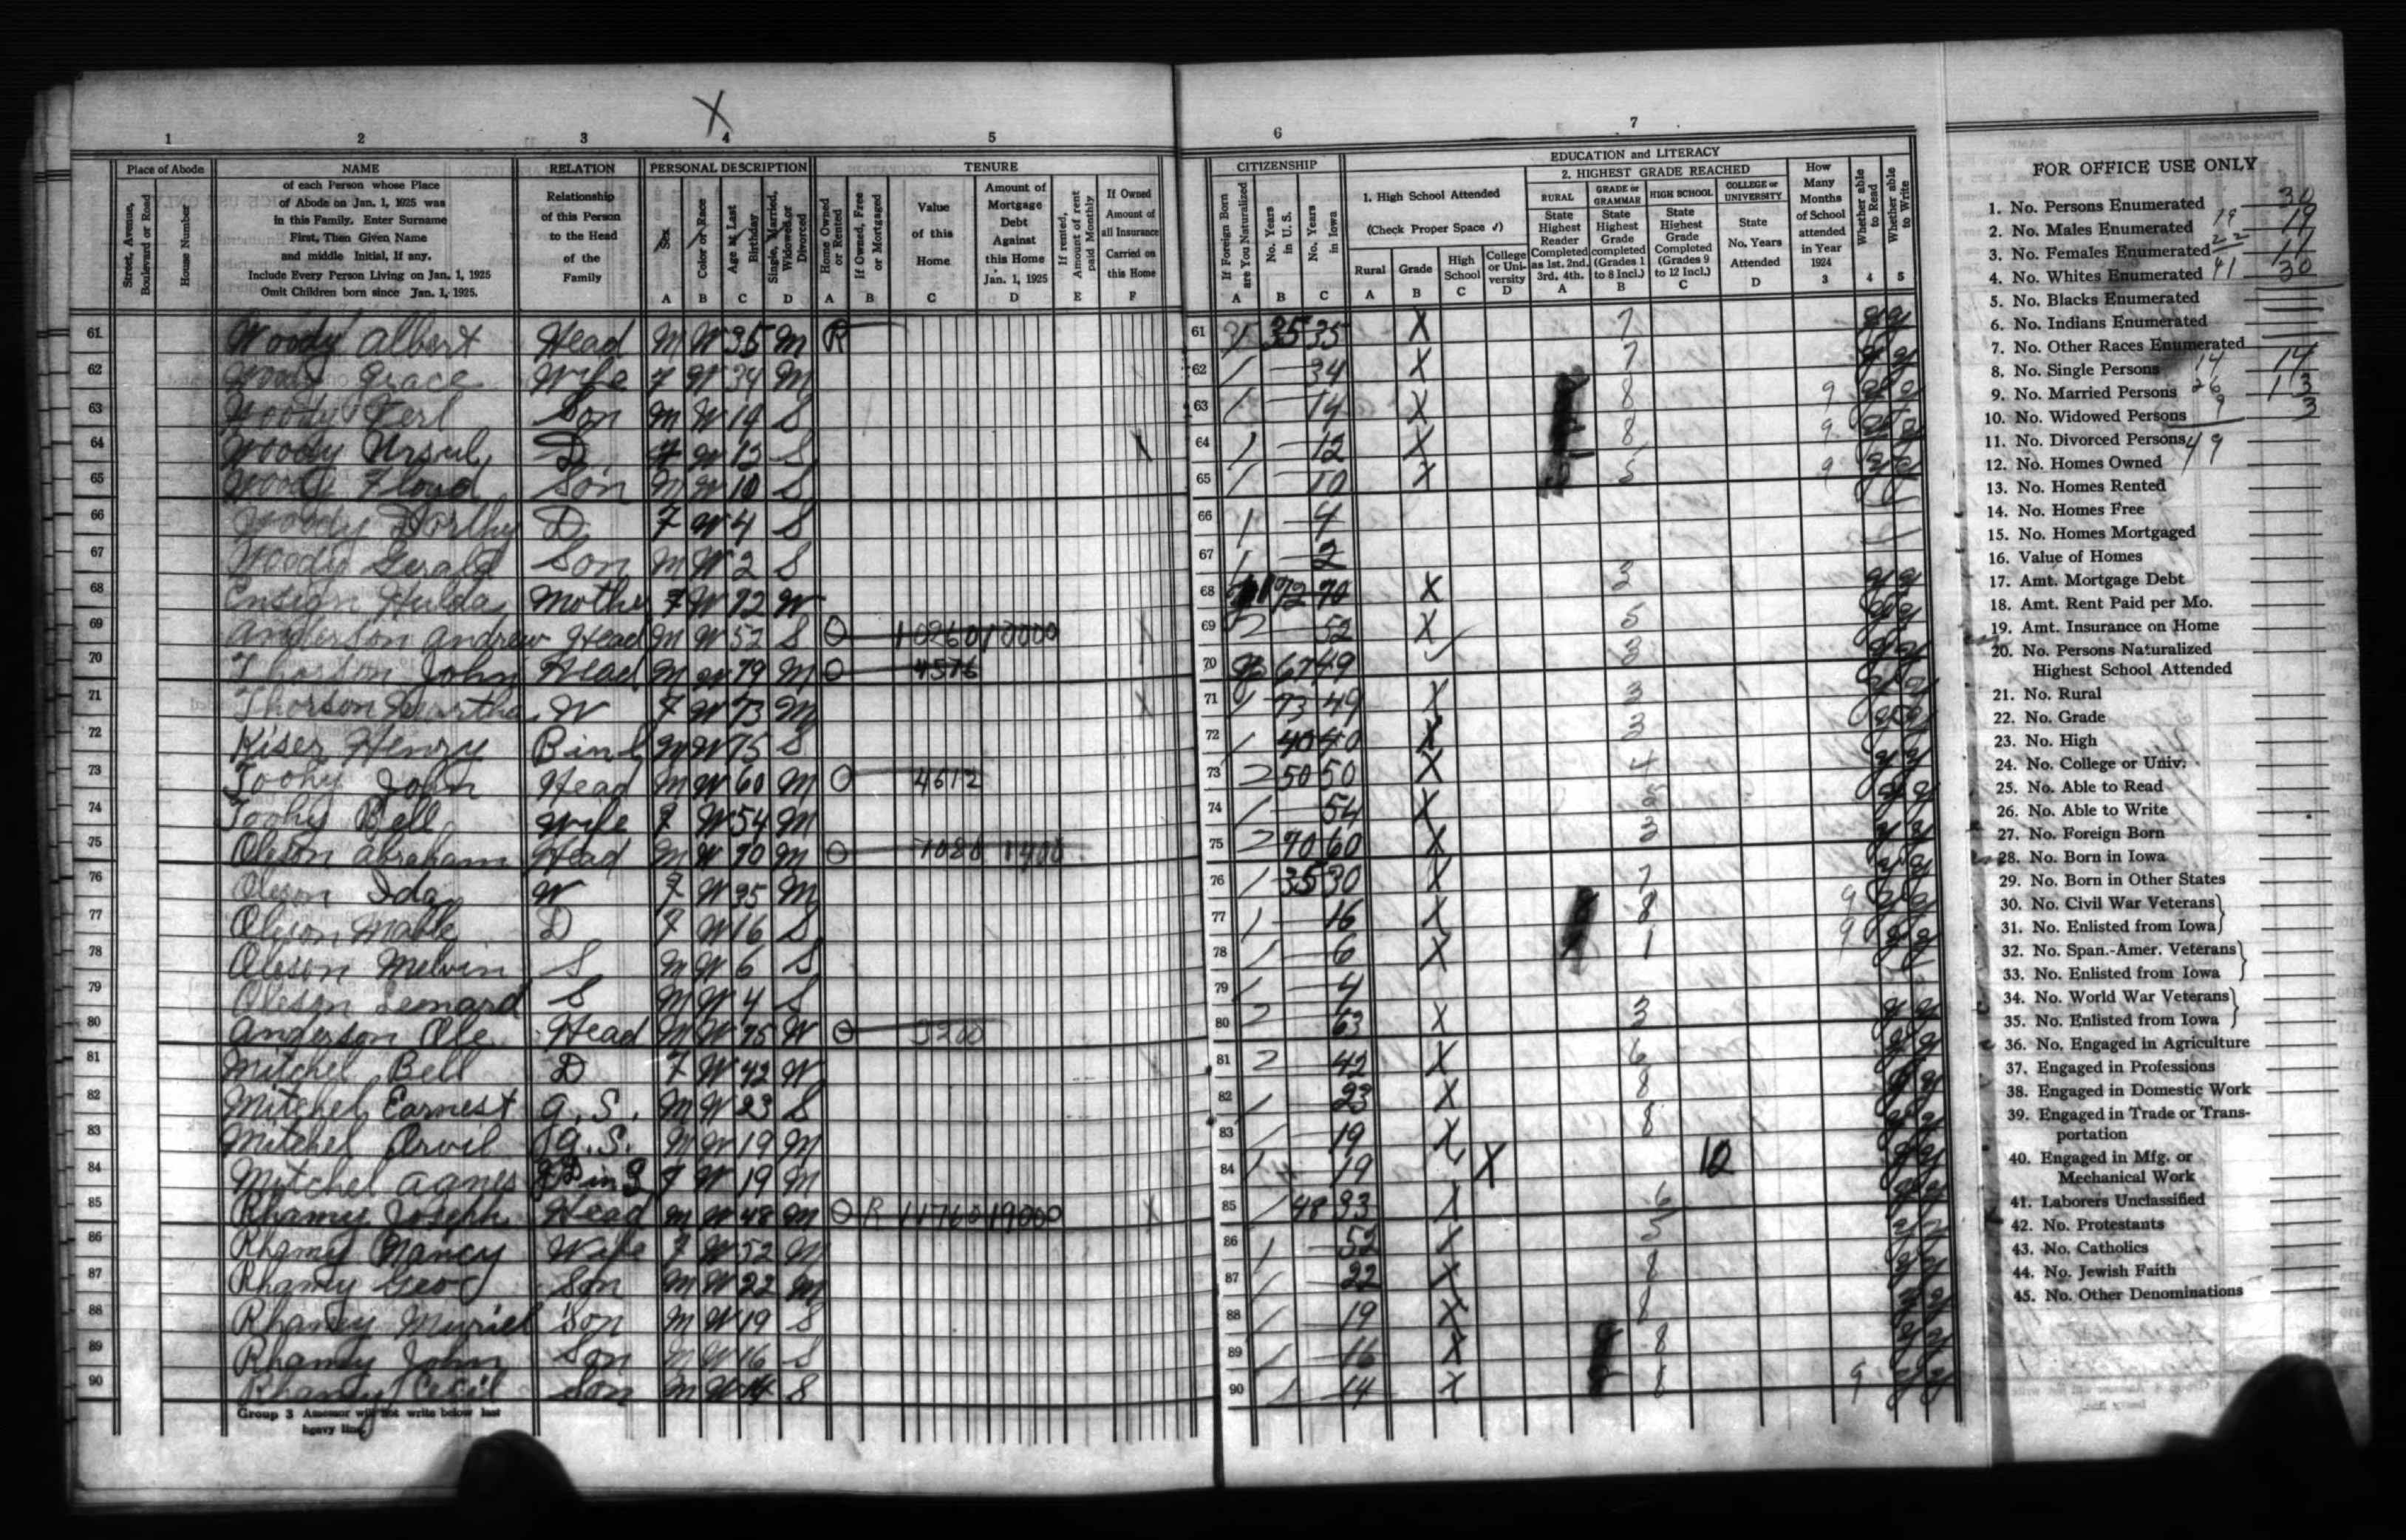 X
1 2 3 4 5 6 7
Place of Abode NAME RELATION PERSONAL DESCRIPTION TENURE CITIZENSHIP EDUCATION and LITERACY
Street, Avenue, Boulevard or Road
House Number
of each Person whose Place
of Abode on Jan. 1, 1925 was
in this Family. Enter Surname
First, Then Given Name
and middle Initial, If any.
Include Every Person Living on Jan. 1, 1925
Omit Children born since Jan. 1, 1925.
Relationship
of this Person
to the Head
of the
Family
Sex A
Color or Race B
Age at Last Birthday C
Single, Married, Widowed or Divorced D
Home Owned or Rented A
If Owned, Free or Mortgaged B
Value of this Home C
Amount of Mortgage Debt Against this Home Jan. 1, 1925 D
If rented, Amount of rent paid Monthly E
If Owned Amount of all Insurance Carried on this Home F
If Foreign Born are You Naturalized A
No. Years in U. S. B
No. Years in Iowa C
1. High School Attended
(Check Proper Space ✓)
Rural A
Grade B
High School C
College or University D
2. HIGHEST GRADE REACHED
RURAL State Highest Reader Completed as 1st. 2nd. 3rd. 4th. A
GRADE or GRAMMAR State Highest Grade completed (Grades 1 to 8 Incl.) B
HIGH SCHOOL State Highest Grade Completed (Grades 9 to 12 Incl.) C
COLLEGE or UNIVERSITY State No. Years Attended D
How Many Months of School attended in Year 1924 3
Whether able to Read 4
Whether able to Write 5
61 Woody Albert Head M W 35 M R 61 35 35 X 7 y y
62 Woody Grace Wife F W 34 M 62 1 34 X 7 y y
63 Woody Son M W 14 S 63 1 14 X 8 9 y y
64 Woody D F W 12 S 64 1 12 X 8 9 y y
65 Woody Floyd Son M W 10 S 65 1 10 X 5 9 y y
66 Woody Dorthy D F W 4 S 66 1 4
67 Woody Gerald Son M W 2 S 67 1 2
68 Ensign Hulda Mothe F W 72 W 68 72 70 X 3 y y
69 Anderson Andrew Head M W 52 S O 10960 10000 69 2 52 X 5 y y
70 Thorson John Head M W 79 M O 4576 70 67 49 3 y y
71 Thorson Martha W F W 73 M 71 1 73 49 X 3 y y
72 Kiser Henry M W 75 S 72 1 40 40 X 3 y y
73 Toohy John Head M W 60 M O 4612 73 2 50 50 X 4 y y
74 Toohy Bell Wife F W 54 M 74 1 54 X 5 y y
75 Oleson Abraham Head M W 70 M O 7080 1400 75 2 70 60 X 3 y y
76 Oleson Ida W F W 35 M 76 1 35 30 X 7 y y
77 Oleson Mable D F W 16 S 77 1 16 X 8 9 y y
78 Oleson Melvin S M W 6 S 78 1 6 X 1 9 y y
79 Oleson Lennard S M W 4 S 79 1 4
80 Anderson Ole Head M W 75 W O 3200 80 2 63 X 3 y y
81 Mitchel Bell D F W 42 W 81 2 42 X 6 y y
82 Mitchel Earnest G.S. M W 23 S 82 1 23 X 8 y y
83 Mitchel Orvil G.S. M W 19 M 83 1 19 X 8 y y
84 Mitchel Agnes F W 19 M 84 1 19 X 10 y y
85 Rhamy Joseph Head M W 48 M O R 11760 19000 85 1 48 33 X 6 y y
86 Rhamy Nancy Wife F W 52 M 86 1 52 X 5 y y
87 Rhamy Geo Son M W 22 M 87 1 22 X 8 y y
88 Rhamy Muriel Son M W 19 S 88 1 19 X 8 y y
89 Rhamy John Son M W 16 S 89 1 16 X 8 y y
90 Rhamy Cecil Son M W 14 S 90 1 14 X 8 9 y y
Group 3 Assessor will not write below last
heavy line.
FOR OFFICE USE ONLY
1. No. Persons Enumerated 30
2. No. Males Enumerated 19 19
3. No. Females Enumerated 22 11
4. No. Whites Enumerated 41 30
5. No. Blacks Enumerated
6. No. Indians Enumerated
7. No. Other Races Enumerated
8. No. Single Persons 14 14
9. No. Married Persons 26 13
10. No. Widowed Persons 9 3
11. No. Divorced Persons 49
12. No. Homes Owned
13. No. Homes Rented
14. No. Homes Free
15. No. Homes Mortgaged
16. Value of Homes
17. Amt. Mortgage Debt
18. Amt. Rent Paid per Mo.
19. Amt. Insurance on Home
20. No. Persons Naturalized
Highest School Attended
21. No. Rural
22. No. Grade
23. No. High
24. No. College or Univ.
25. No. Able to Read
26. No. Able to Write
27. No. Foreign Born
28. No. Born in Iowa
29. No. Born in Other States
30. No. Civil War Veterans
31. No. Enlisted from Iowa
32. No. Span.-Amer. Veterans
33. No. Enlisted from Iowa
34. No. World War Veterans
35. No. Enlisted from Iowa
36. No. Engaged in Agriculture
37. Engaged in Professions
38. Engaged in Domestic Work
39. Engaged in Trade or Trans-
portation
40. Engaged in Mfg. or
Mechanical Work
41. Laborers Unclassified
42. No. Protestants
43. No. Catholics
44. No. Jewish Faith
45. No. Other Denominations